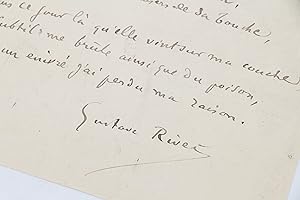 baisers de sa bouche,
ce jour là qu'elle vint sur ma couche
subtil me brûle ainsi que du poison,
enivré j'ai perdu ma raison.
Gustave Rivet